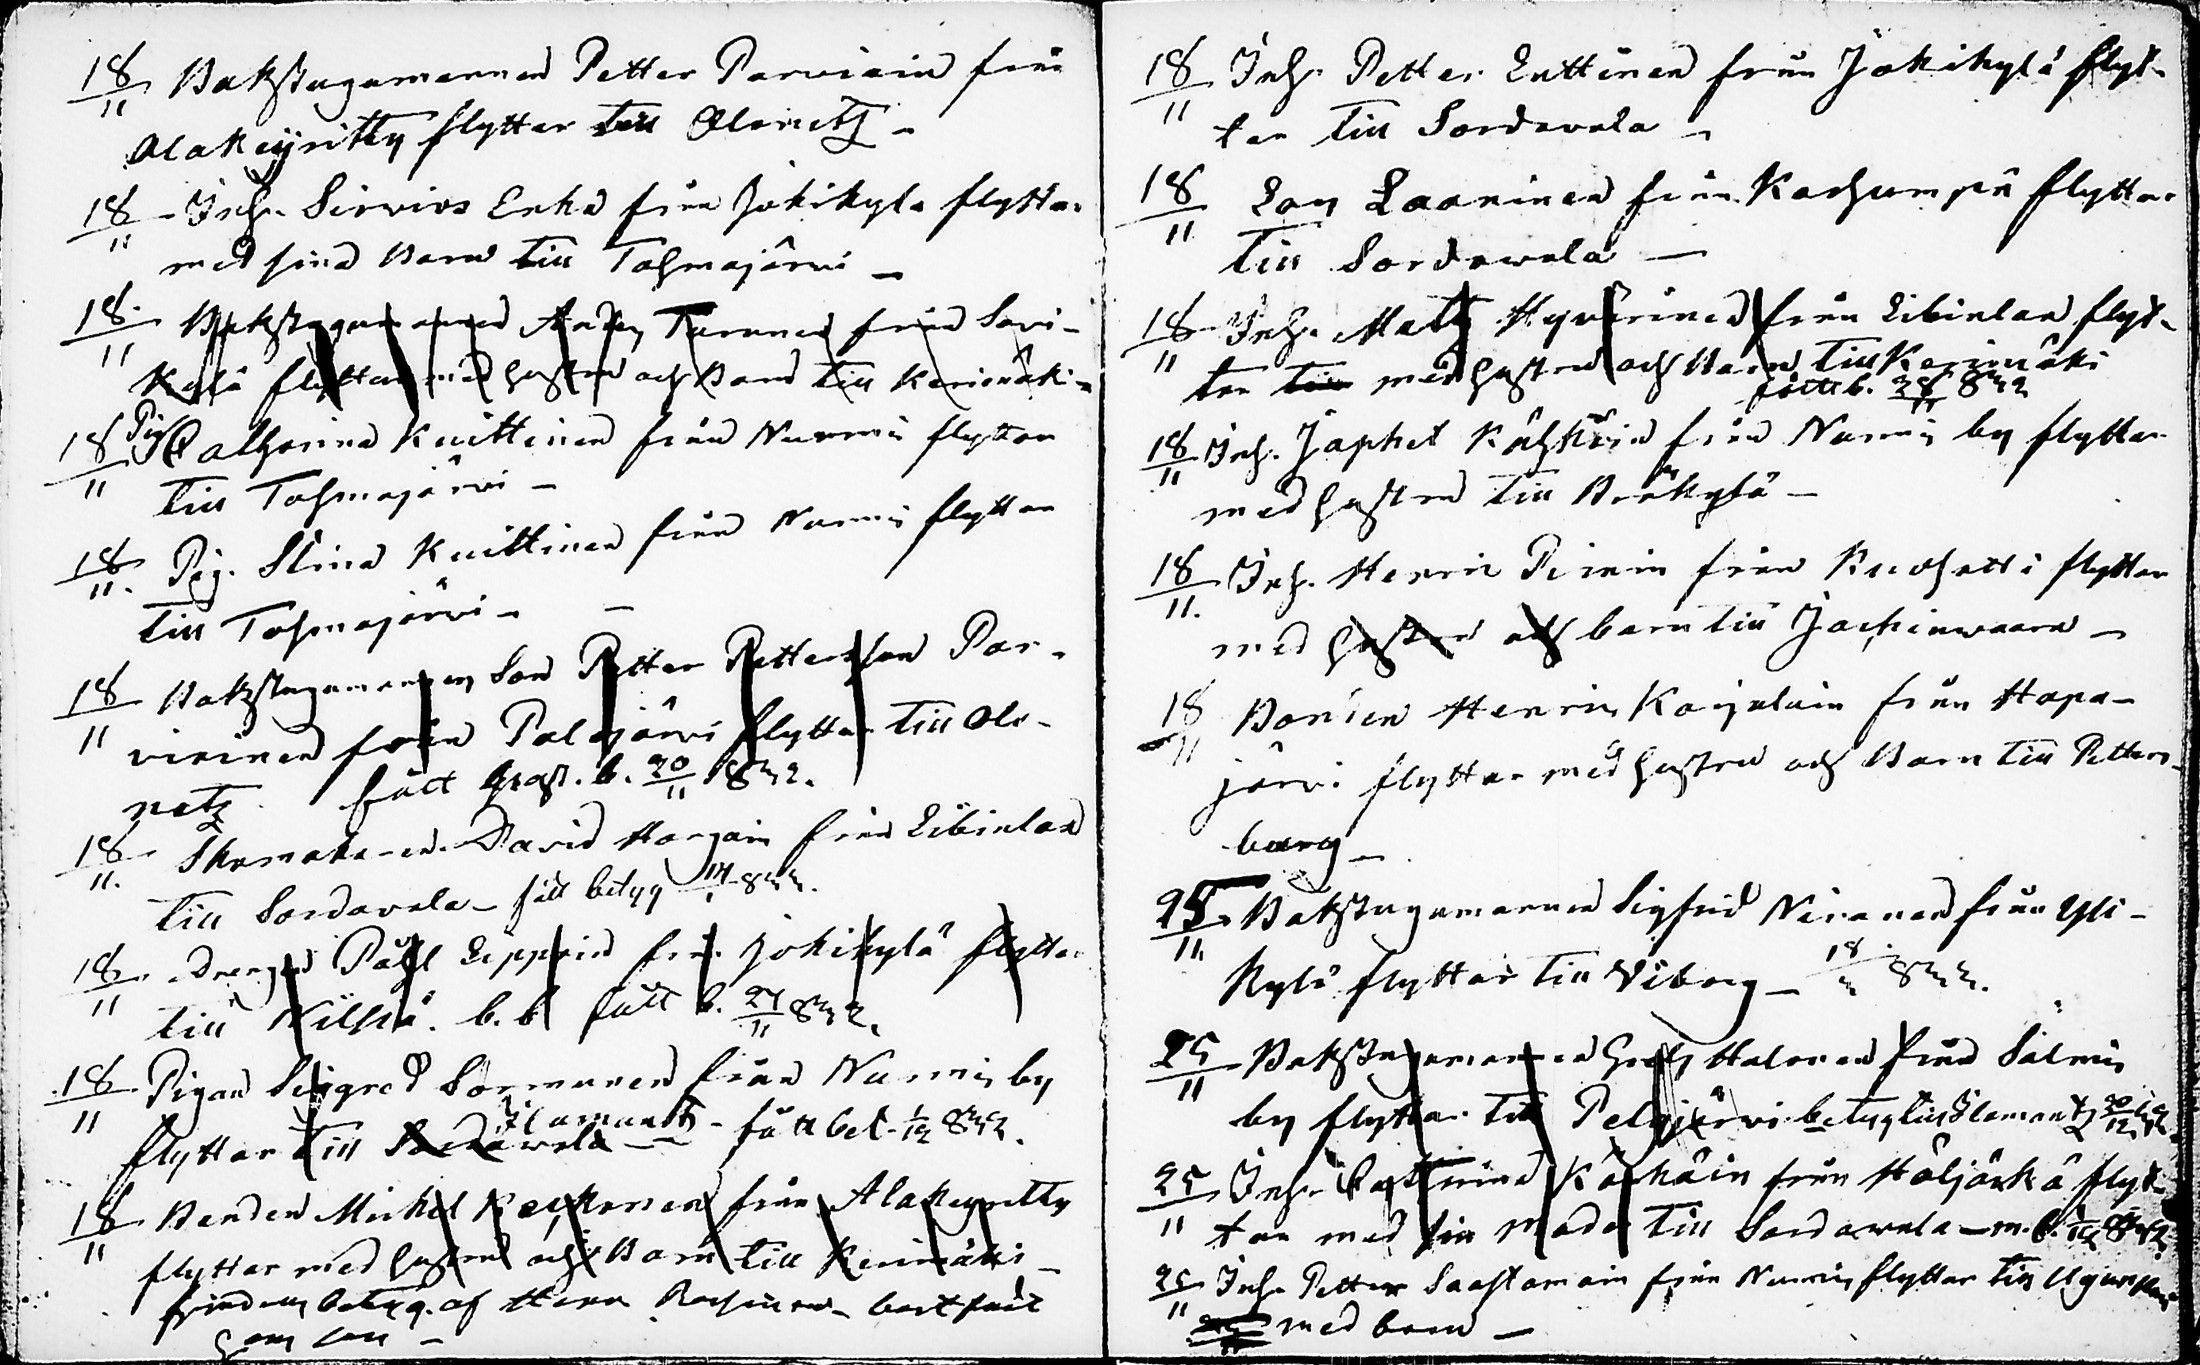 18/11 Bakstugumannen Petter Parviain från
Alakeyritty flyttar till Olonetz -
18/11 Inh. Sirvios Enka från Jokikylä flyttar
med sina Barn till Tohmajärvi -
18/11 Bakstugumannen Anders Turunen från Savi-
kylä flyttar med hustru och Barn till Kerimäki -
18/11 Pig. Catharina Kuittinen från Nurmis flyttar
till Tohmajärvi -
18/11. Pig. Stina Kuittinen från Nurmis flyttar
till Tohmajärvi -
18/11 Bakstugumannens Son Petter Pettersson Par-
viainen från Palojärvi flyttar till Olo-
netz fått b. 20/11 842.
18/11. Skomakaren David Harjain från Libinlax
till Sordavala - fått betyg 14/1 833.
18/11 Drengen Påhl Lippoin från Jokikylä flyttar
till Nilsiä. b. b fått b. 27/11 832.
18/11 Pigan Seigred Sormunen från Nurmis by
flyttar till Sordavala Ilamants - fått bet. 1/12 832.
18/11 Bonden Michel Keckonen från Alakeyritty
flyttar med hustru och Barn till Kerimäki -
betyg. af Herr
18/11 Inh. Petter Enttinen från Jokikylä flyt-
tar till Sordavala -
18/11 Laaninen från flyttar
till Sordavala -
18/11 Inh. Matts Hyvärinen från Libinlax flyt-
tar till med hustru och Barn till Kerimäki
fått b. 28/11 832
18/11 Inh. Japhet från Nurmis by flyttar
med hustru till Bräkylä -
18/11. Inh. Henric Pirnin från Kuohatti flyttar
med hustru och barn till Jackimwaara -
18/11 Bonden Henric Karjalain från Hapa-
järvi flyttar med hustru och Barn till Petters-
burg -
25/11 Bakstugumannen Sigfrid Niranen från Yli-
Kylä flyttar till Viborg - 18/3 833.
25/11 Bakstugumannen Halonen från Salmis
by flyttar till Pelgjärvi betyg till Ilamants
25/11 Inh. Cathrina från Höljäkkä flyt-
tar med sin Moder till Sordawala -
25/11 Inh. Petter Saastamoin från Nurmis flyttar till
med barn -